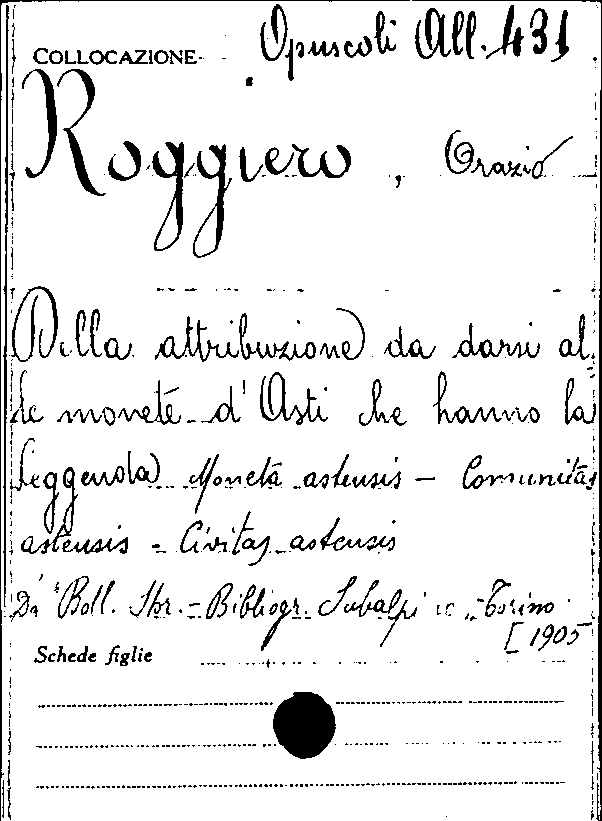 COLLOCAZIONE Opuscoli All. 431
Roggiero, Orazio
Della attribuzione da darsi al-
le monete d'Asti che hanno la
leggenda Moneta astensis - Comunitas
astensis - Civitas astensis
Da "Boll. Stor. - Bibliogr. Subalpi o" - Torino
[1905
Schede figlie